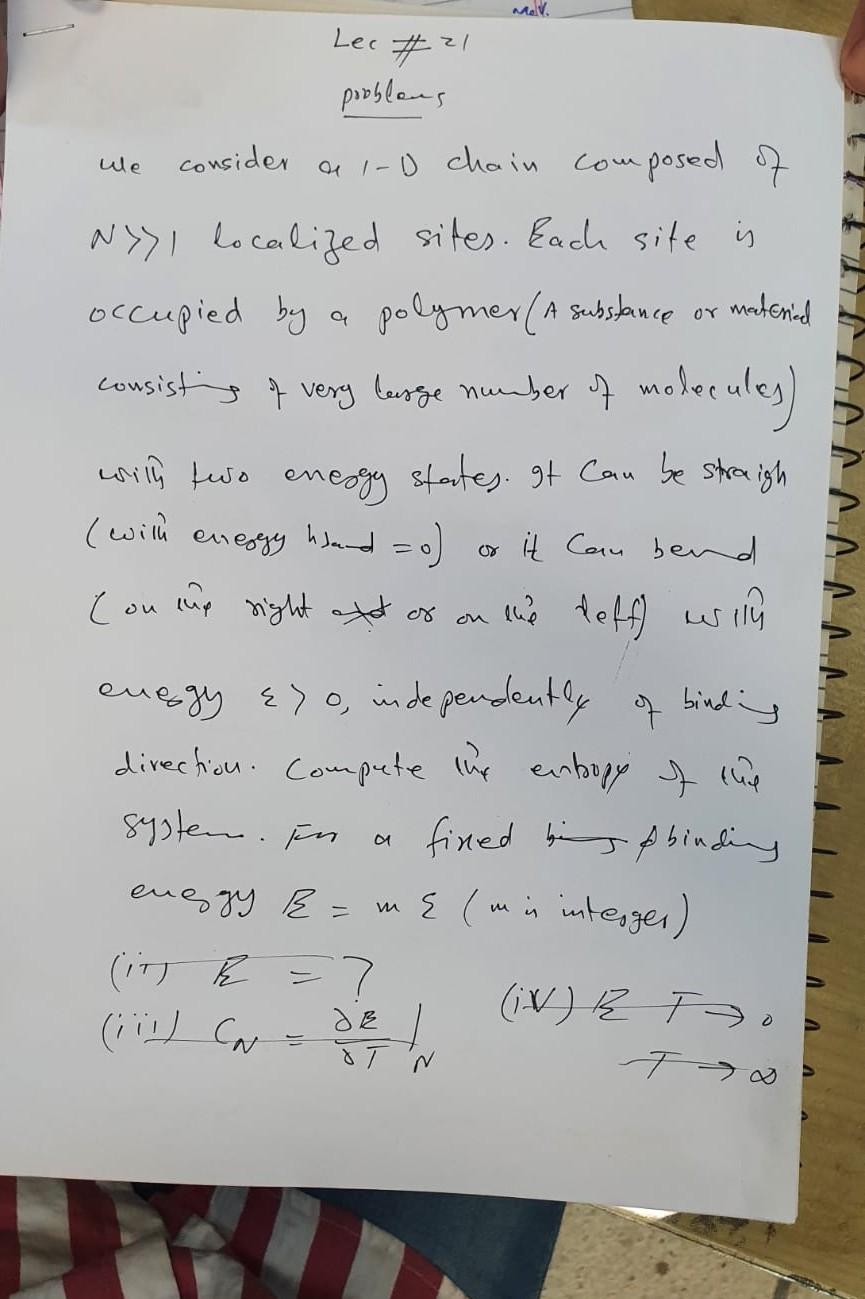 Lec # 21
problems
we consider a 1-D chain composed of
N>>1 localized sites. Each site is
occupied by a polymer (A substance or material
consisting of very large number of molecules)
with two energy states. It can be straigh
(with energy = 0) or it can bend
(on the right or on the left) with
energy ε > 0, independently of binding
direction. Compute the entropy of the
system. For a fixed binding
energy E = m ε (m is interger)
(ii) E = ?
(iv) E T → 0
(iii) C_N = ∂E/∂T |_N
T → ∞